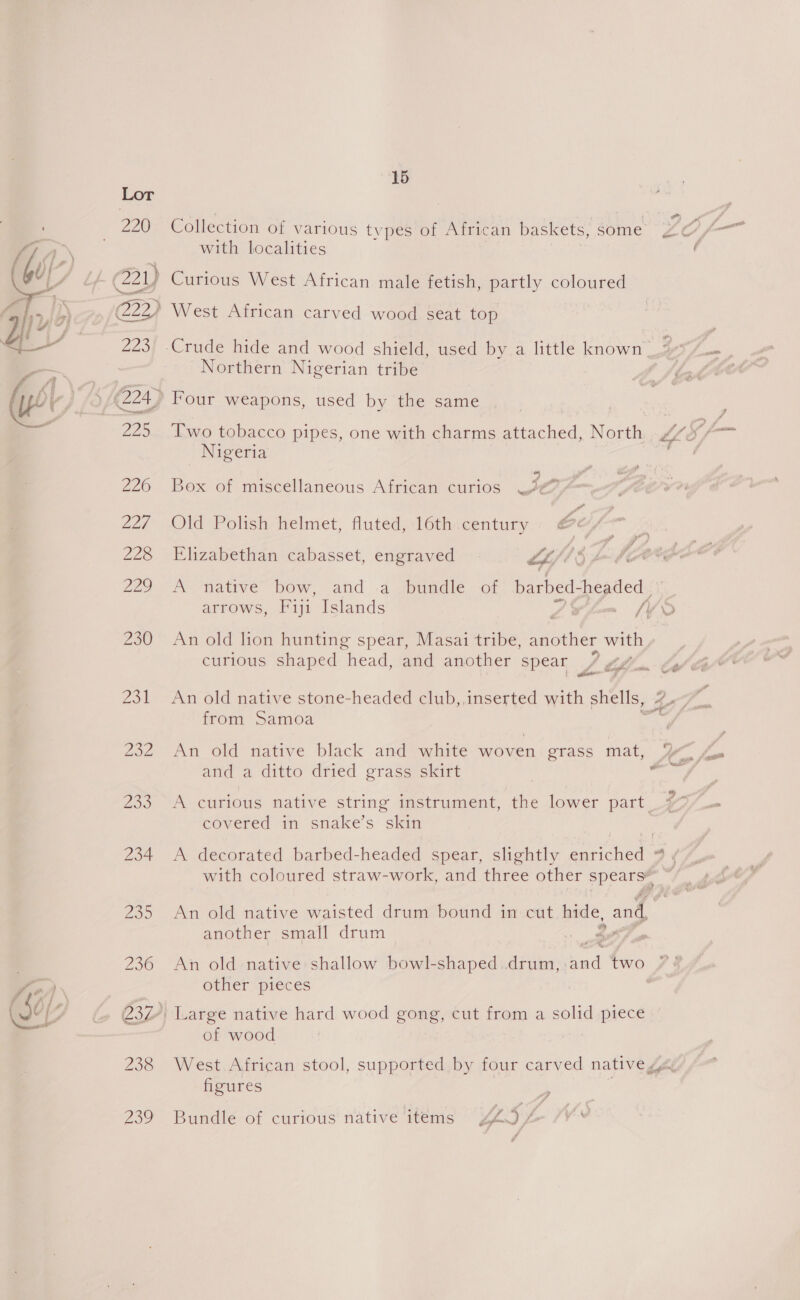 15
Lot
220 Collection of various types of African baskets, some
with localities
221 Curious West African male fetish, partly coloured
222 West African carved wood seat top
223 Crude hide and wood shield, used by a little known
Northern Nigerian tribe
224 Four weapons, used by the same
225 Two tobacco pipes, one with charms attached, North
Nigeria
226 Box of miscellaneous African curios
227 Old Polish helmet, fluted, 16th century
228 Elizabethan cabasset, engraved
229 A native bow, and a bundle of barbed-headed
arrows, Fiji Islands
230 An old lion hunting spear, Masai tribe, another with
curious shaped head, and another spear
231 An old native stone-headed club, inserted with shells,
from Samoa
232 An old native black and white woven grass mat,
and a ditto dried grass skirt
233 A curious native string instrument, the lower part
covered in snake's skin
234 A decorated barbed-headed spear, slightly enriched
with coloured straw-work, and three other spears
235 An old native waisted drum bound in cut hide, and
another small drum
236 An old native shallow bowl-shaped drum, and two
other pieces
237 Large native hard wood gong, cut from a solid piece
of wood
238 West African stool, supported by four carved native
figures
239 Bundle of curious native items